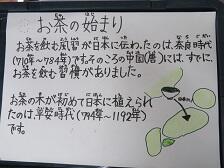 お茶の始まり
お茶を飲む風習が日本に伝わったのは、奈良時代
(710年～784年)です。そのころの中国(唐)には、すでに、
お茶を飲む習慣がありました。
お茶の木が初めて日本に植えられ
たのは、平安時代(794年～1192年)
です。